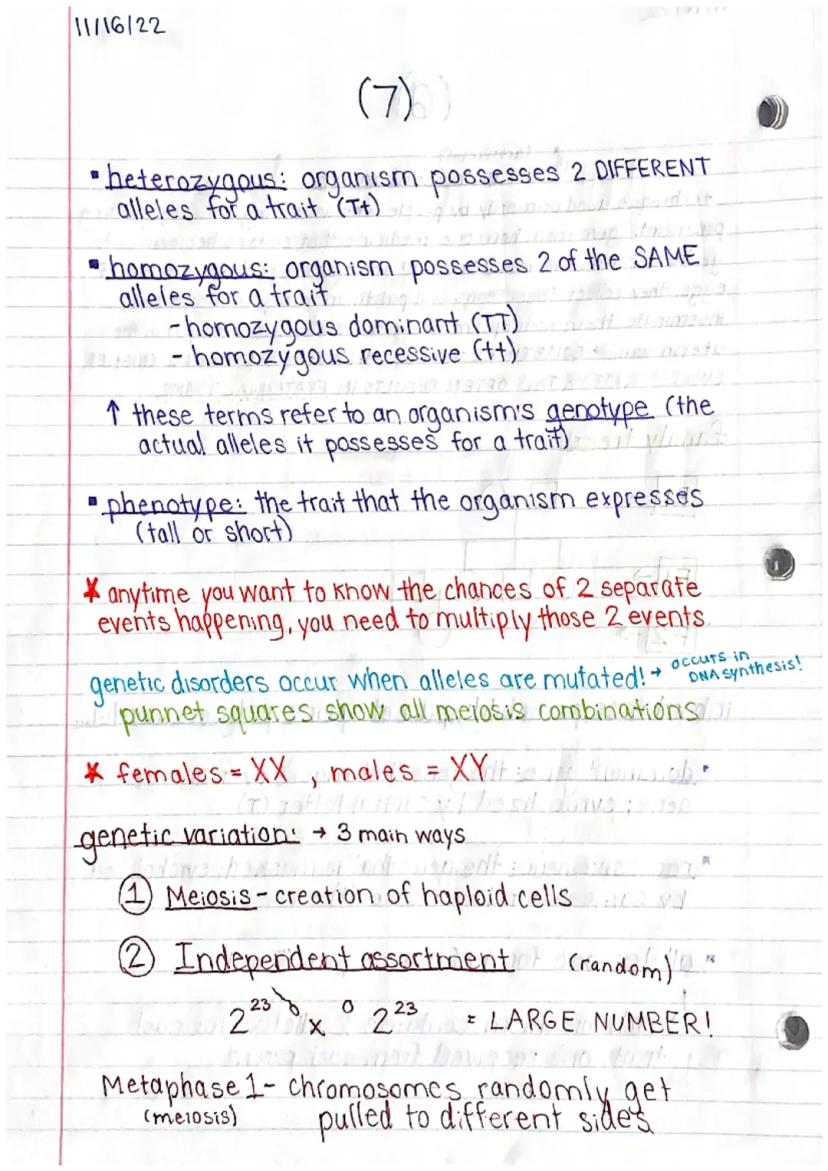 11/16/22
(7)
▪ heterozygous: organism possesses 2 DIFFERENT
alleles for a trait (Tt)
▪ homozygous: organism possesses 2 of the SAME
alleles for a trait
- homozygous dominant (TT)
- homozygous recessive (tt)
↑ these terms refer to an organism's genotype (the
actual alleles it possesses for a trait)
▪ phenotype: the trait that the organism expresses
(tall or short)
* anytime you want to know the chances of 2 separate
events happening, you need to multiply those 2 events.
genetic disorders occur when alleles are mutated! → occurs in
DNA synthesis!
punnet squares show all meiosis combinations
* females = XX , males = XY
genetic variation: → 3 main ways
① Meiosis - creation of haploid cells
② Independent assortment (random)
2²³ x 2²³ = LARGE NUMBER!
Metaphase 1 - chromosomes randomly get
(meiosis) pulled to different sides